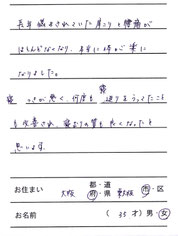 長年悩まされていた肩こりと腰痛が
ほとんどなくなり、本当に体が楽に
なりました。
寝つきが悪く、何度も寝返りをうってたこと
も改善され、睡眠の質も良くなったと
思います。
お住まい 大阪 都・道・府・県 東大阪 市・区
お名前 (35才) 男・女